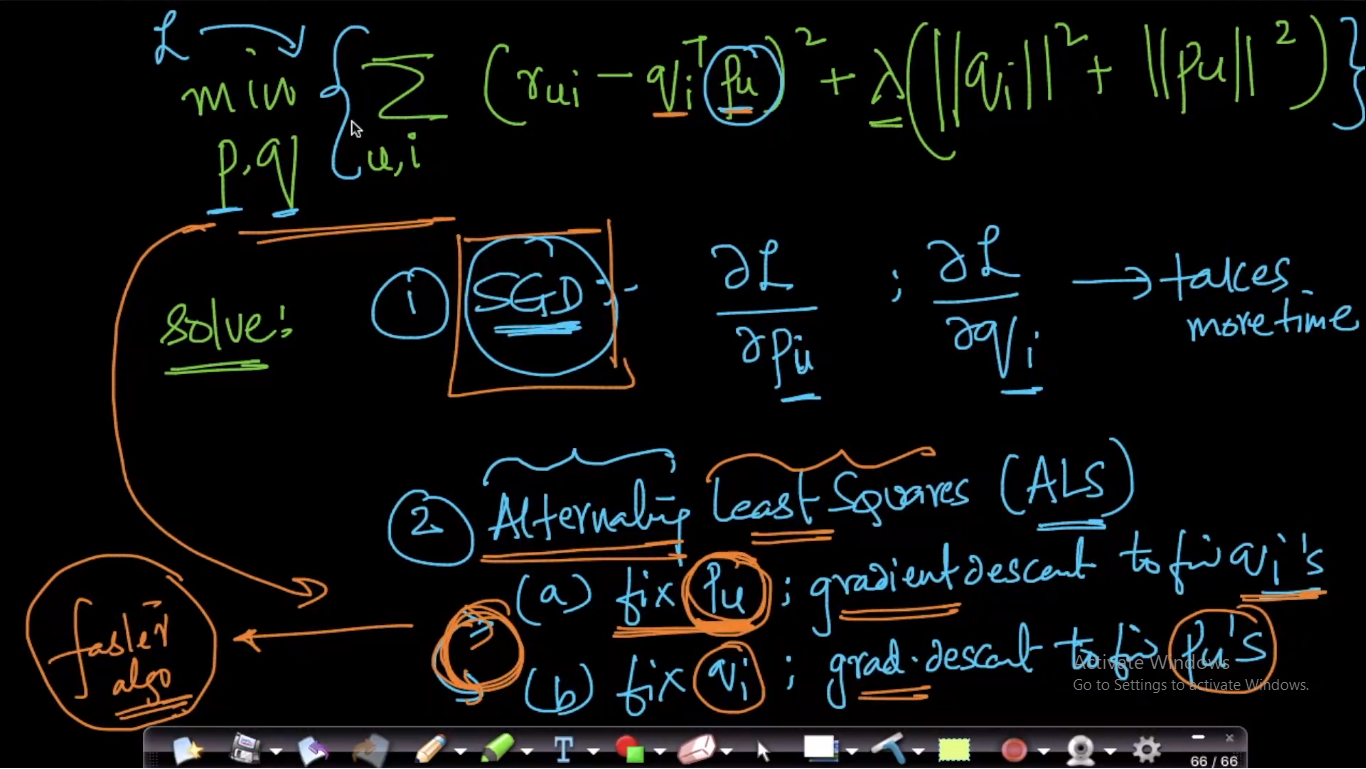 L
min { Σ (rui − qiᵀ pu)² + λ(||qi||² + ||pu||²) }
p,q u,i
solve:
① SGD :- ∂L/∂pu ; ∂L/∂qi → takes more time
② Alternating Least Squares (ALS)
(a) fix pu ; gradient descent to fin qi's
(b) fix qi ; grad. descent to fin pu's
faster
algo
Activate Windows
Go to Settings to activate Windows.
T
66 / 66